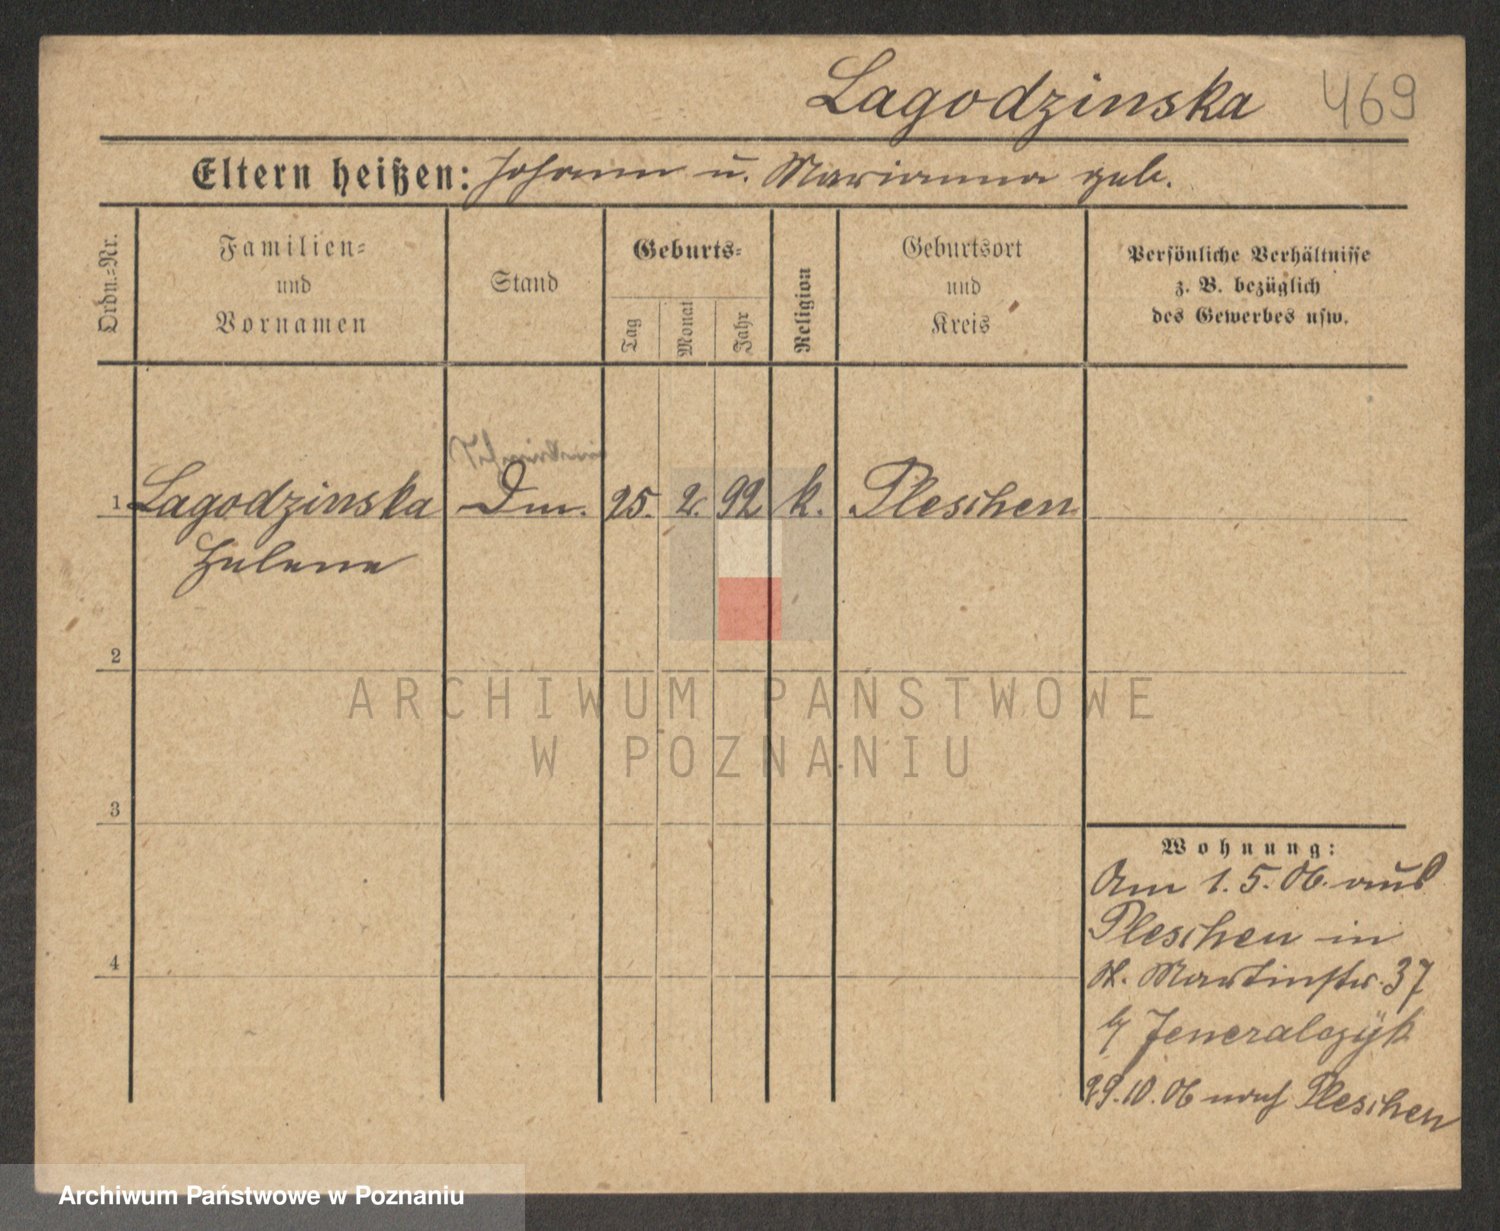 Lagodzinska 469
Eltern heißen: Johann u. Marianna geb.
Ordn.=Nr.
Familien=
und
Vornamen
Stand
Geburts=
Tag
Monat
Jahr
Religion
Geburtsort
und
Kreis
Persönliche Verhältnisse
z. B. bezüglich
des Gewerbes usw.
1 Lagodzinska Dm. 25. 2. 92 k. Pleschen
Helene
2
ARCHIWUM PAŃSTWOWE
W POZNANIU
3
Wohnung:
Am 1.5.06. aus
Pleschen in
St. Martinstr. 37
b/ Jeneralczyk
4
29.10.06 nach Pleschen
Archiwum Państwowe w Poznaniu